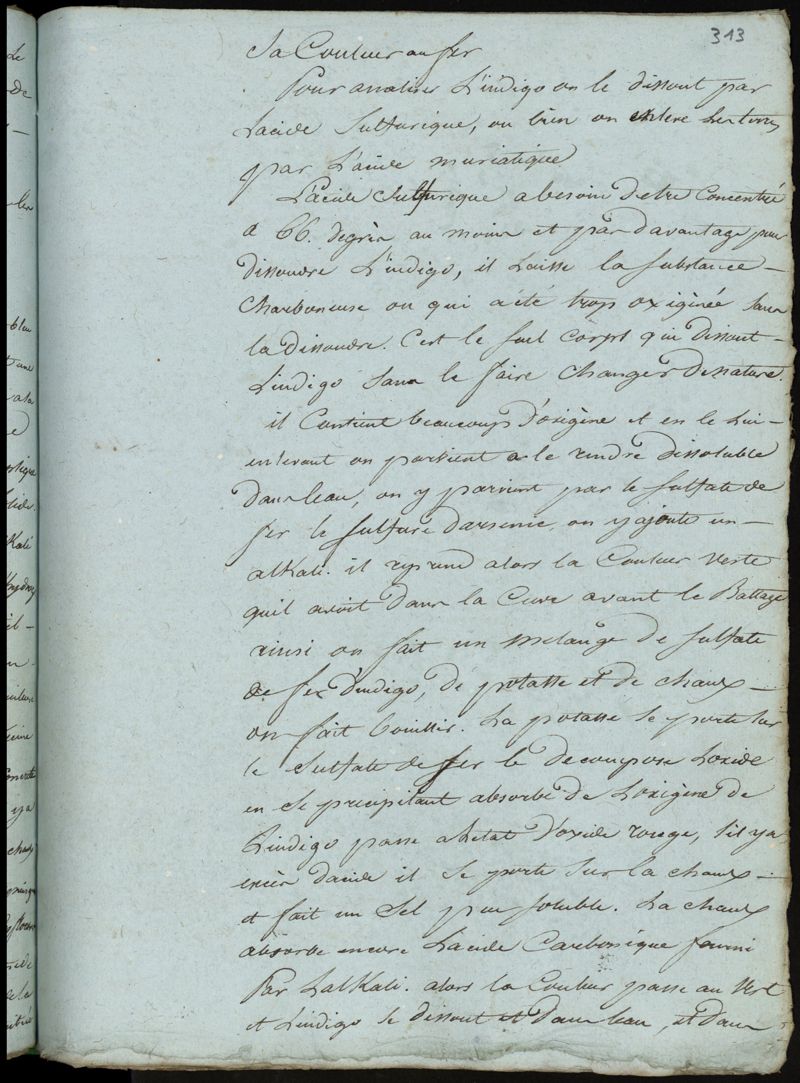 313
Sa Couleur au fer
Pour analiser L'indigo on le dissout par
Lacide Sulfurique, ou bien on enleve les terres
par L'acide muriatique
L'acide Sulfurique a besoin d'etre Concentrée
a 66. degrés au moins et pas davantage pour
dissoudre L'indigo, il Laisse la substance
charboneuse ou qui a été trop oxigénée sans
la dissoudre. C'est le seul corps qui dissout
Lindigo sans le faire changer de nature.
il Contient beaucoup d'oxigène et en le lui
enlevant on parvient a le rendre dissoluble
dans leau, on y parvient par le sulfate de
fer le sulfure darsenic, on y ajoute un
alkali. il reprend alors la Couleur verte
quil avoit dans la Cuve avant le Battage
ainsi on fait un melange de sulfate
de fer d'indigo, de potasse et de chaux
on fait bouillir. La potasse se porte sur
le Sulfate de fer le decompose Loxide
en se precipitant absorbe de Loxigene de
Lindigo passe a letat d'oxide rouge, s'il y a
excès dacide il se porte sur la chaux
et fait un Sel peu soluble. La chaux
absorbe encore L'acide Carbonique fourni
Par Lalkali. alors la Couleur passe au Vert
et Lindigo se dissout et dans leau, et dans